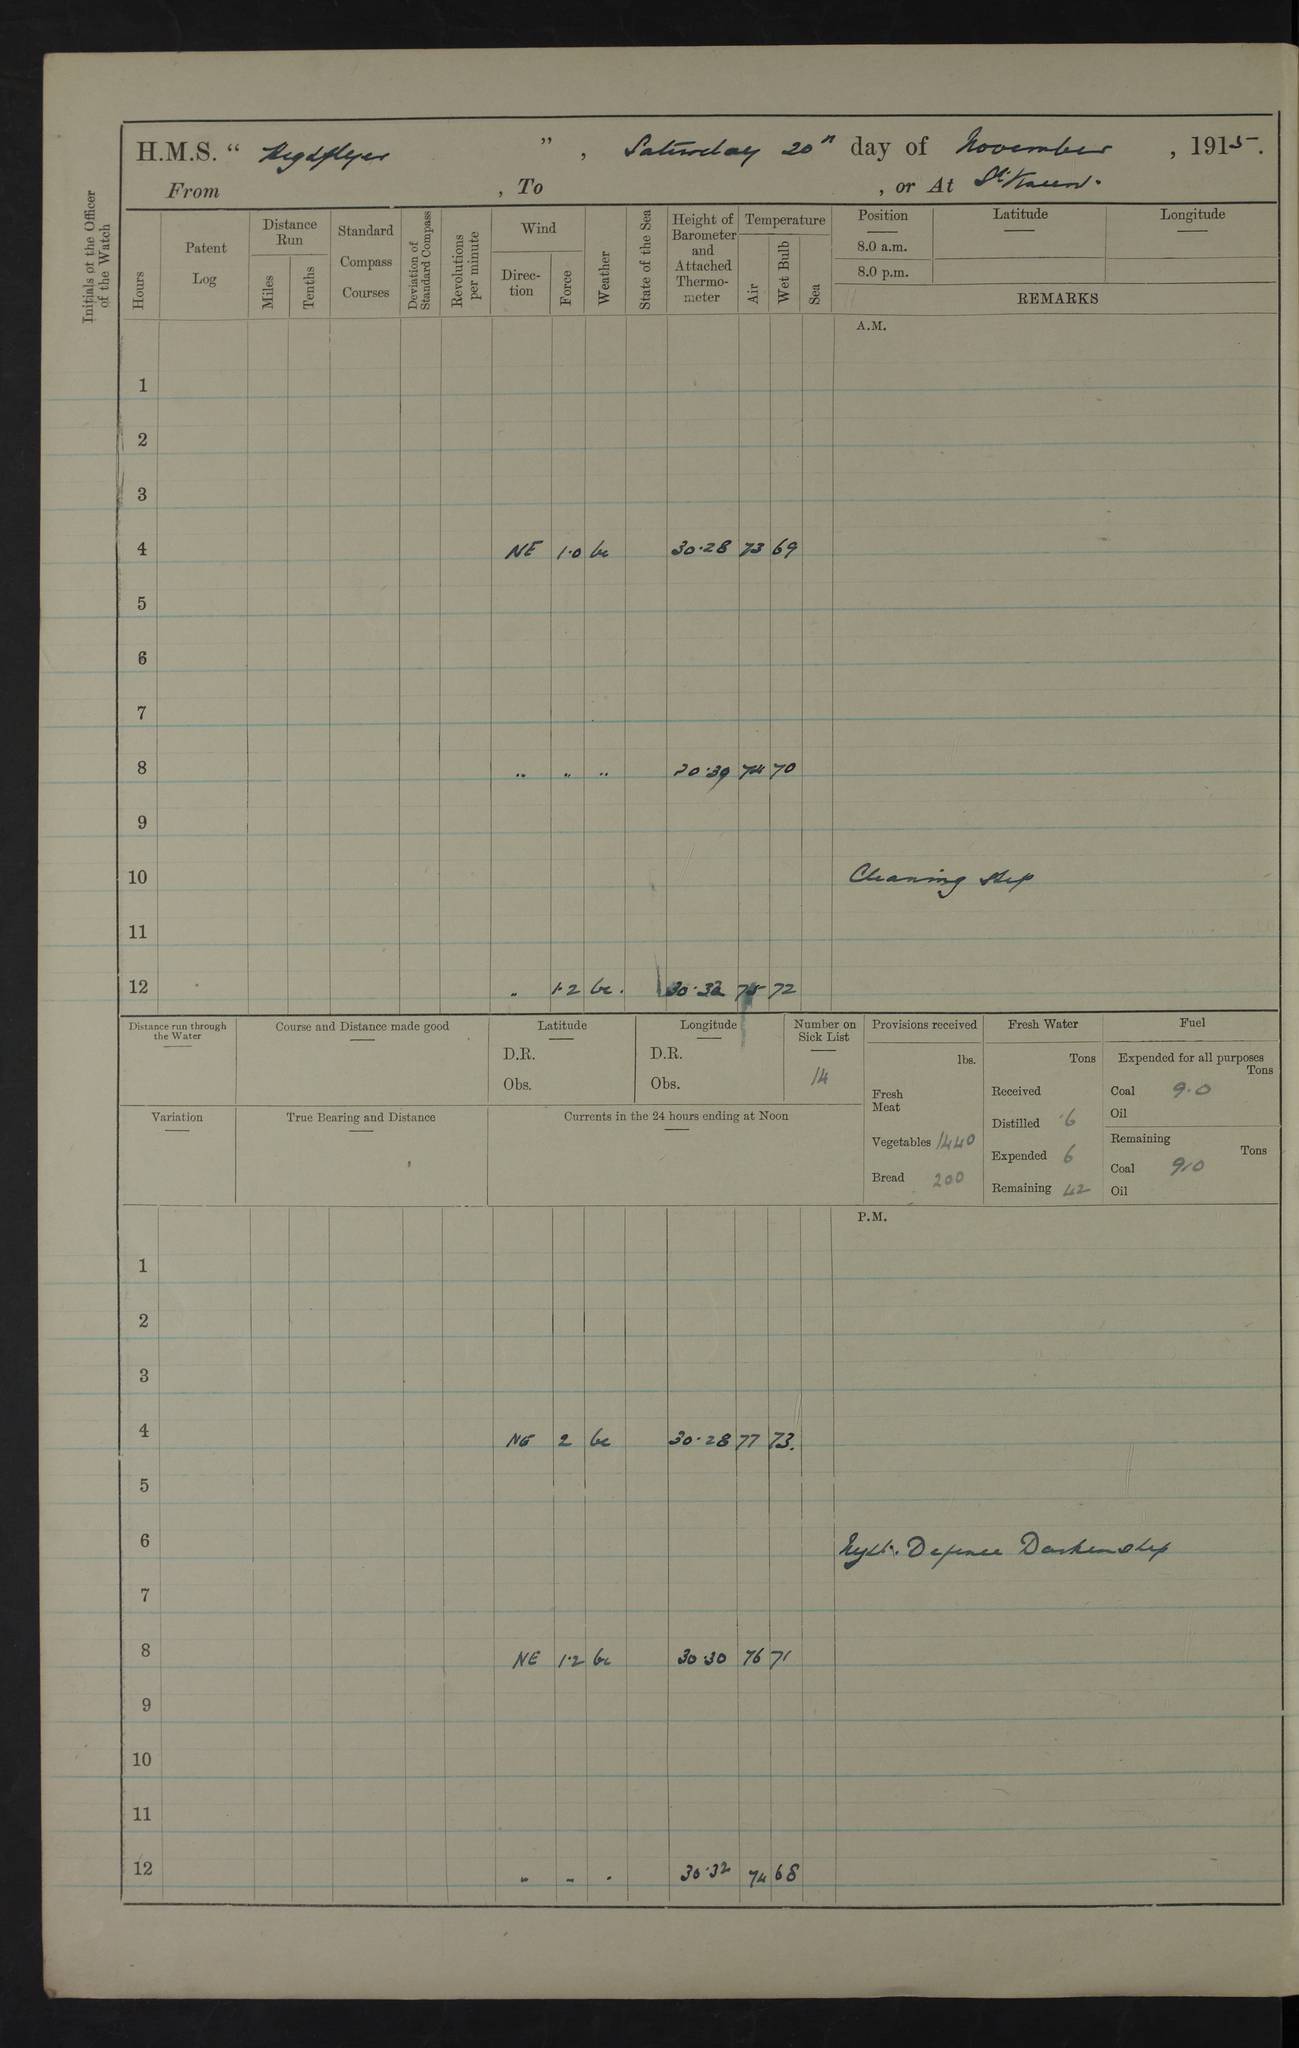 H.M.S. “ Highflyer ”, Saturday 20th day of November, 1915.
From , To , or At St. Vincent.
Initials of the Officer of the Watch
Hours
Patent Log
Distance Run
Miles
Tenths
Standard Compass Courses
Deviation of Standard Compass
Revolutions per minute
Wind
Direction
Force
Weather
State of the Sea
Height of Barometer and Attached Thermo-meter
Temperature
Air
Wet Bulb
Sea
Position
8.0 a.m.
8.0 p.m.
Latitude
Longitude
REMARKS
A.M.
1
2
3
4 NE 1·0 bc 30·28 73 69
5
6
7
8 " " " 30·30 74 70
9
10 Cleaning Ship
11
12 " 1·2 bc. 30·32 75 72
Distance run through the Water
Course and Distance made good
Latitude
D.R.
Obs.
Longitude
D.R.
Obs.
Number on Sick List
14
Provisions received
lbs.
Fresh Meat
Vegetables 1440
Bread 200
Fresh Water
Tons
Received
Distilled 6
Expended 6
Remaining 42
Fuel
Expended for all purposes
Tons
Coal 9·0
Oil
Remaining
Tons
Coal 910
Oil
Variation
True Bearing and Distance
Currents in the 24 hours ending at Noon
P.M.
1
2
3
4 NE 2 bc 30·28 77 73.
5
6 Night Defence Darken Ship
7
8 NE 1·2 bc 30·30 76 71
9
10
11
12 " " " 30·32 74 68